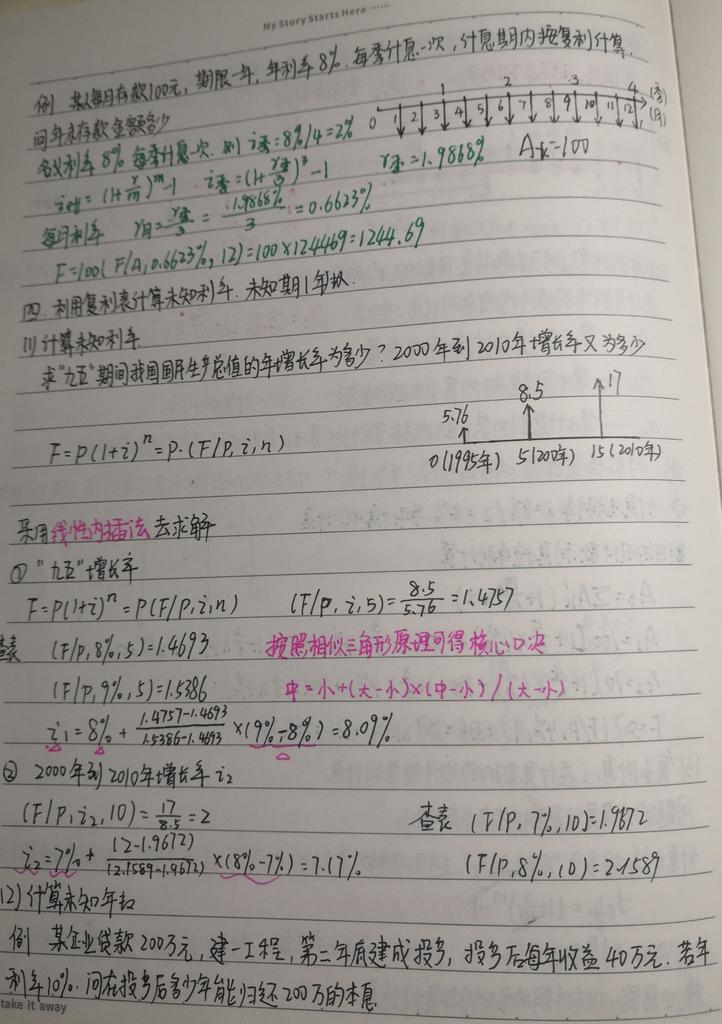 My Story Starts Here ……
例. 某人每月存款100元, 期限一年, 年利率8%. 每季计息一次, 计息期内按复利计算.
问年末存款金额多少
0 1 2 3 4 5 6 7 8 9 10 11 12 (月)
1 2 3 4 (季)
名义利率8% 每季计息一次. 则 i季=8%/4=2%
A=100
i eff = (1+r/m)^m-1 i季=(1+r季/3)^3-1 r季=1.9868%
每月利率 r月=r季/3=1.9868%/3=0.6623%
F=100(F/A, 0.6623%, 12)=100×12.4469=1244.69
四. 利用复利表计算未知利率. 未知期1年扒
(1) 计算未知利率
求"九五"期间我国国民生产总值的年增长率为多少? 2000年到2010年增长率又为多少
5.76 8.5 17
F=P(1+i)^n=P·(F/P, i, n)
0(1995年) 5(200年) 15(2010年)
采用线性内插法去求解
① "九五"增长率
F=P(1+i)^n=P(F/P, i, n) (F/P, i, 5)=8.5/5.76=1.4757
查表 (F/P, 8%, 5)=1.4693 按照相似三角形原理可得核心口决
(F/P, 9%, 5)=1.5386 中=小+(大-小)×(中-小)/(大-小)
i₁=8%+(1.4757-1.4693)/(1.5386-1.4693)×(9%-8%)=8.09%
② 2000年到2010年增长率i₂
(F/P, i₂, 10)=17/8.5=2 查表 (F/P, 7%, 10)=1.9672
i₂=7%+(2-1.9672)/(2.1589-1.9672)×(8%-7%)=7.17% (F/P, 8%, 10)=2.1589
(2) 计算未知年扒
例 某企业贷款200万元, 建一工程, 第二年底建成投产, 投产后每年收益40万元. 若年
利率10%. 问在投产后多少年能归还200万的本息
take it away